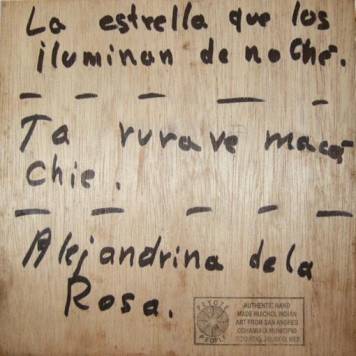 La estrella que los
iluminan de noche.
Ta rurave macas
Chie.
Alejandrina de la
Rosa.
PEYOTE
PEOPLE
AUTHENTIC HAND
MADE HUICHOL INDIAN
ART FROM SAN ANDRES
COHAMIATA MUNICIPIO